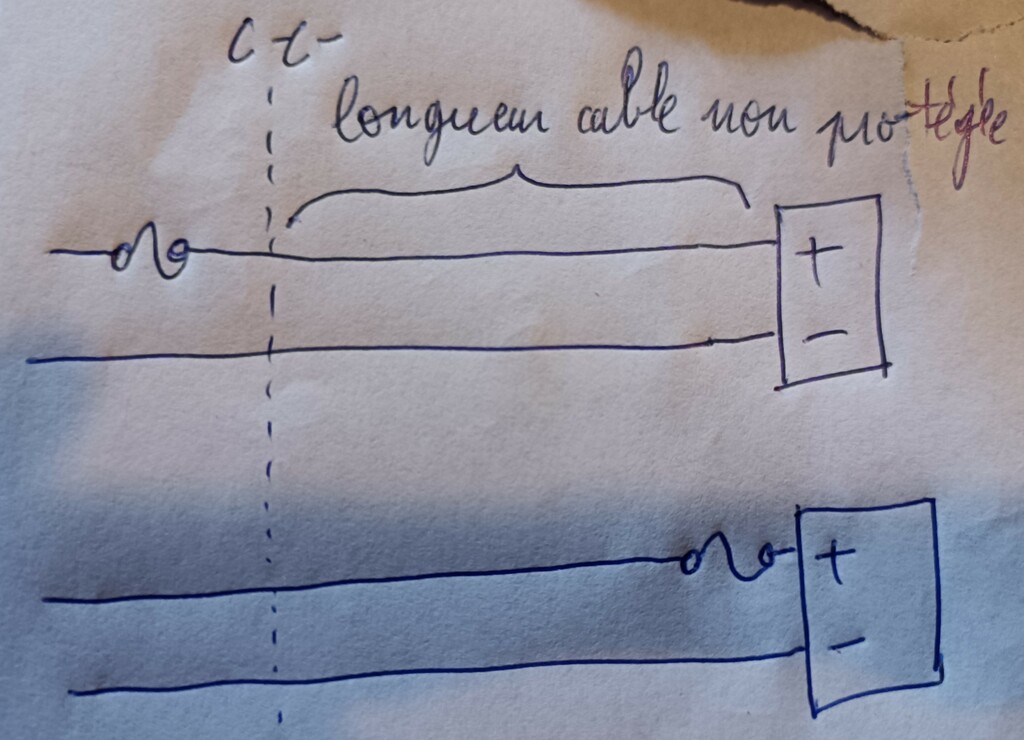 longueur cable non protégée
+
-
+
-